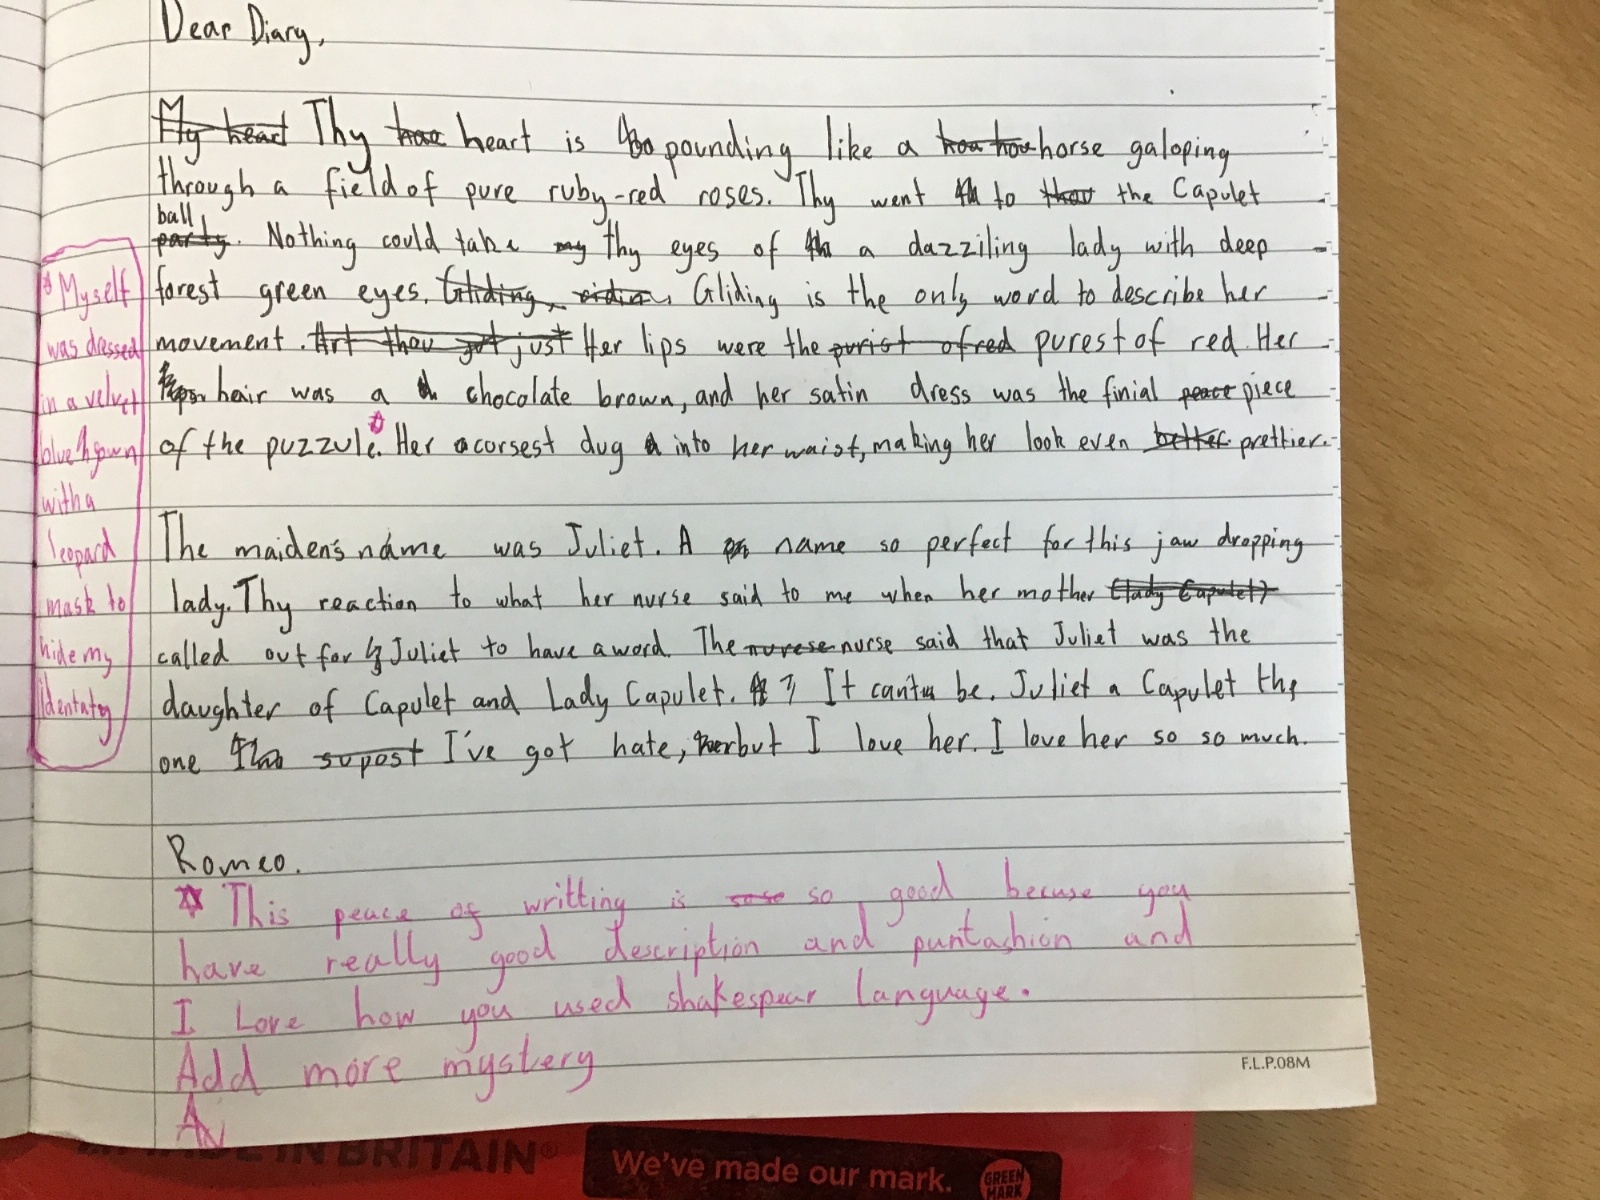 Dear Diary,
My heart Thy heart is pounding like a hou hou horse galoping
through a field of pure ruby-red roses. Thy went to thou the Capulet
ball,
party. Nothing could take my thy eyes of a dazziling lady with deep
forest green eyes. Gliding, Gliding is the only word to describe her
movement. Art thou got just Her lips were the purist of red purest of red. Her
hair was a chocolate brown, and her satin dress was the finial peace piece
of the puzzule. Her corsest dug into her waist, making her look even better prettier.
The maiden's name was Juliet. A name so perfect for this jaw dropping
lady. Thy reaction to what her nurse said to me when her mother (lady Capulet)
called out for Juliet to have a word. The nurese nurse said that Juliet was the
daughter of Capulet and Lady Capulet. It cant be. Juliet a Capulet the
one supost I've got hate, but I love her. I love her so so much.
Romeo.
*Myself
was dressed
in a velvet
blue gown
with a
leopard
mask to
hide my
Identaty
This peace of writting is so good becuse you
have really good description and puntashion and
I Love how you used shakespear language.
Add more mystery
F.L.P.08M
MADE IN BRITAIN
We've made our mark.
GREEN
MARK